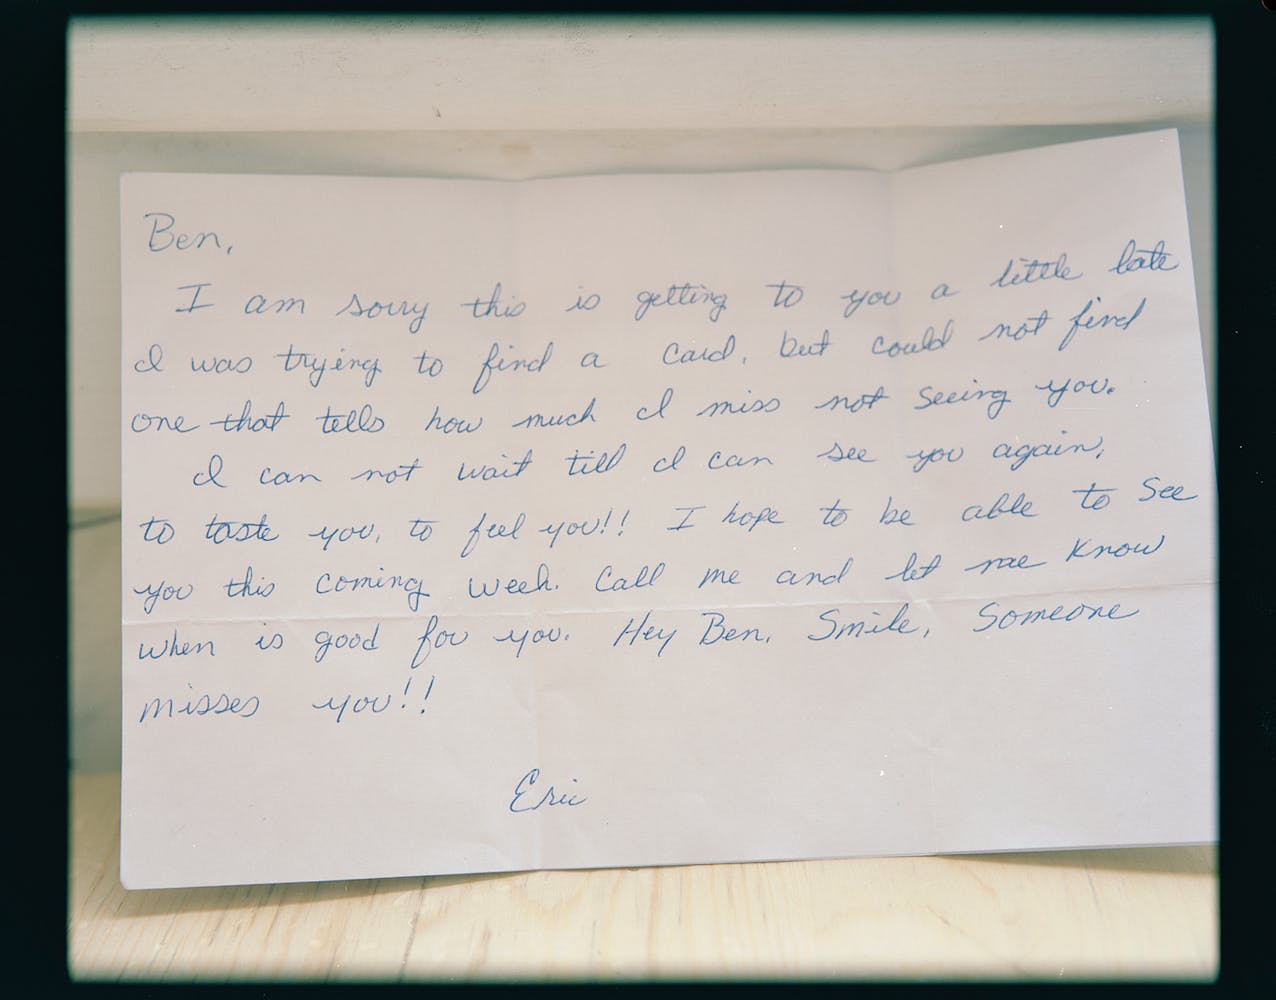 Ben,
I am sorry this is getting to you a little late
I was trying to find a card, but could not find
one that tells how much I miss not seeing you.
I can not wait till I can see you again,
to taste you, to feel you!! I hope to be able to see
you this coming week. Call me and let me know
when is good for you. Hey Ben, Smile, Someone
misses you!!
Eric